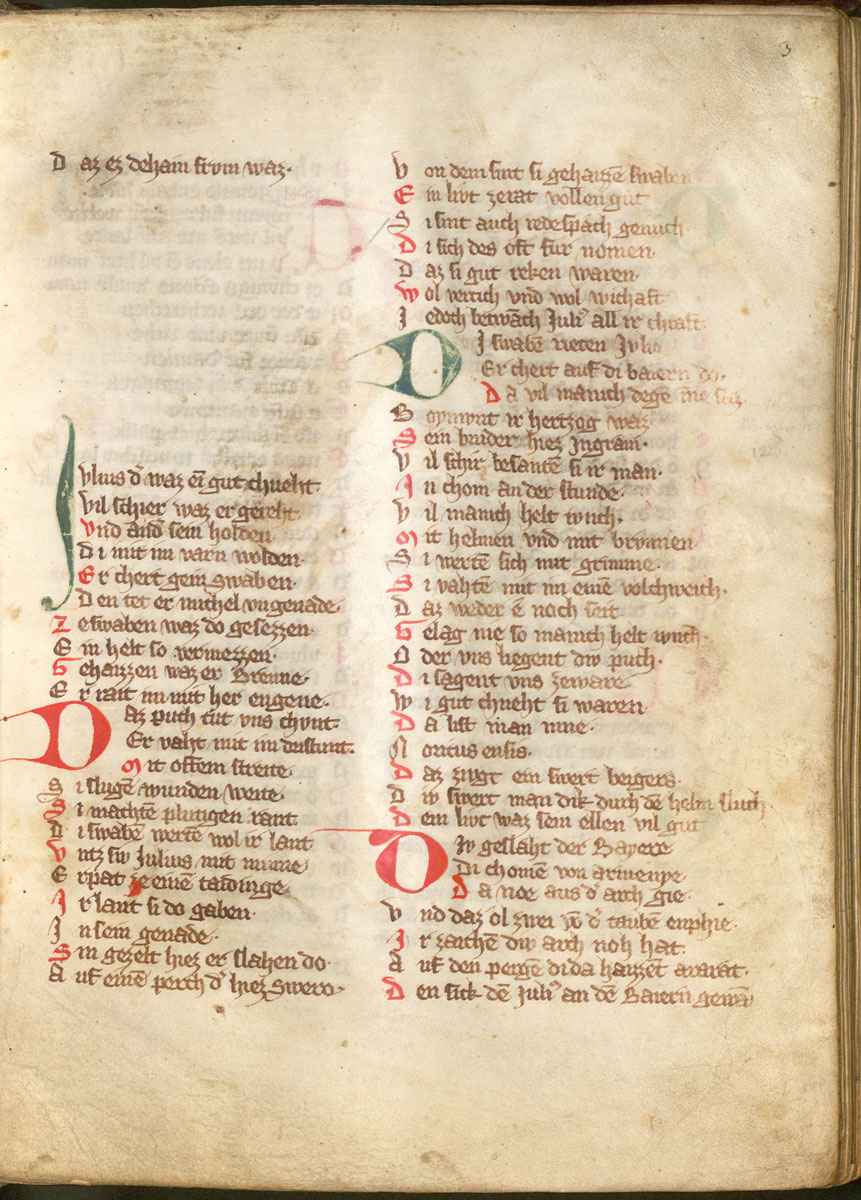 3
D az ez deham frvm waz·
Jvlius d͛ waz ein gut chneht·
Vil schier waz er gereht·
Vnd and͛ sein holden·
D i mit im varn wolden·
E r chert gein swaben·
D en tet er michel vngenade·
Z e swaben waz do gesezzen·
E in helt so vermezzen·
G ehaizzen waz er Brenne·
E r rait im mit her engene·
D az puch tut vns chvnt·
Er vaht mit im dristunt·
M it offem streite·
S i slugē wunden weite·
S i machtē plutigen rant·
D i swabē wertē wol ir lant
V ntz siv Julius mit minne
E rpat ze einē taidinge·
I r lant si do gaben·
I n sein genade·
S in gezelt hiez er slahen do·
A uf einē perch d͛ hiez Swero·
V on dem sint si gehaizē swaben
E in livt zerat vollen gut
S i sint auch redespæch genuch·
D i sich des oft fur nomen·
D az si gut reken waren·
W ol vertich vnd wol wichaft
I edoch betwāch Juli⁹ all ir chraft·
D I swabē rieten Jvlio
Er chert auf di baiern do·
D a vil manich degē ine saz·
B oymunt ir hertzog waz
S ein bruder hiez Ingram·
V il schir besantē si ir man·
I n chom an der stunde·
V il manich helt iunch·
M it helmen vnd mit brvnnen·
S i wertē sich mit grimme·
S i vahtē mit im einē volchweich·
D az weder ē noch seit
G elag nie so manich helt iunch·
O der vns liegent div puch·
D i sagent vns zeware·
W i gut chneht si waren·
D a list man inne·
N oricus ensis·
D az zivgt ein swert beigers·
D iv swert man dik durch dē helm sluch·
D em livt waz sein ellen vil gut
D Iv geslæht der Bayere
Di chomē von armenye·
D a noe aus d͛ arch gie·
V nd daz ol zwei vō d͛ taubē enphie·
I r zaichē div arch noh hat·
A uf den pergē di da haizzēt ararat·
D en sick dē Juli⁹ an dē Baiern gewā